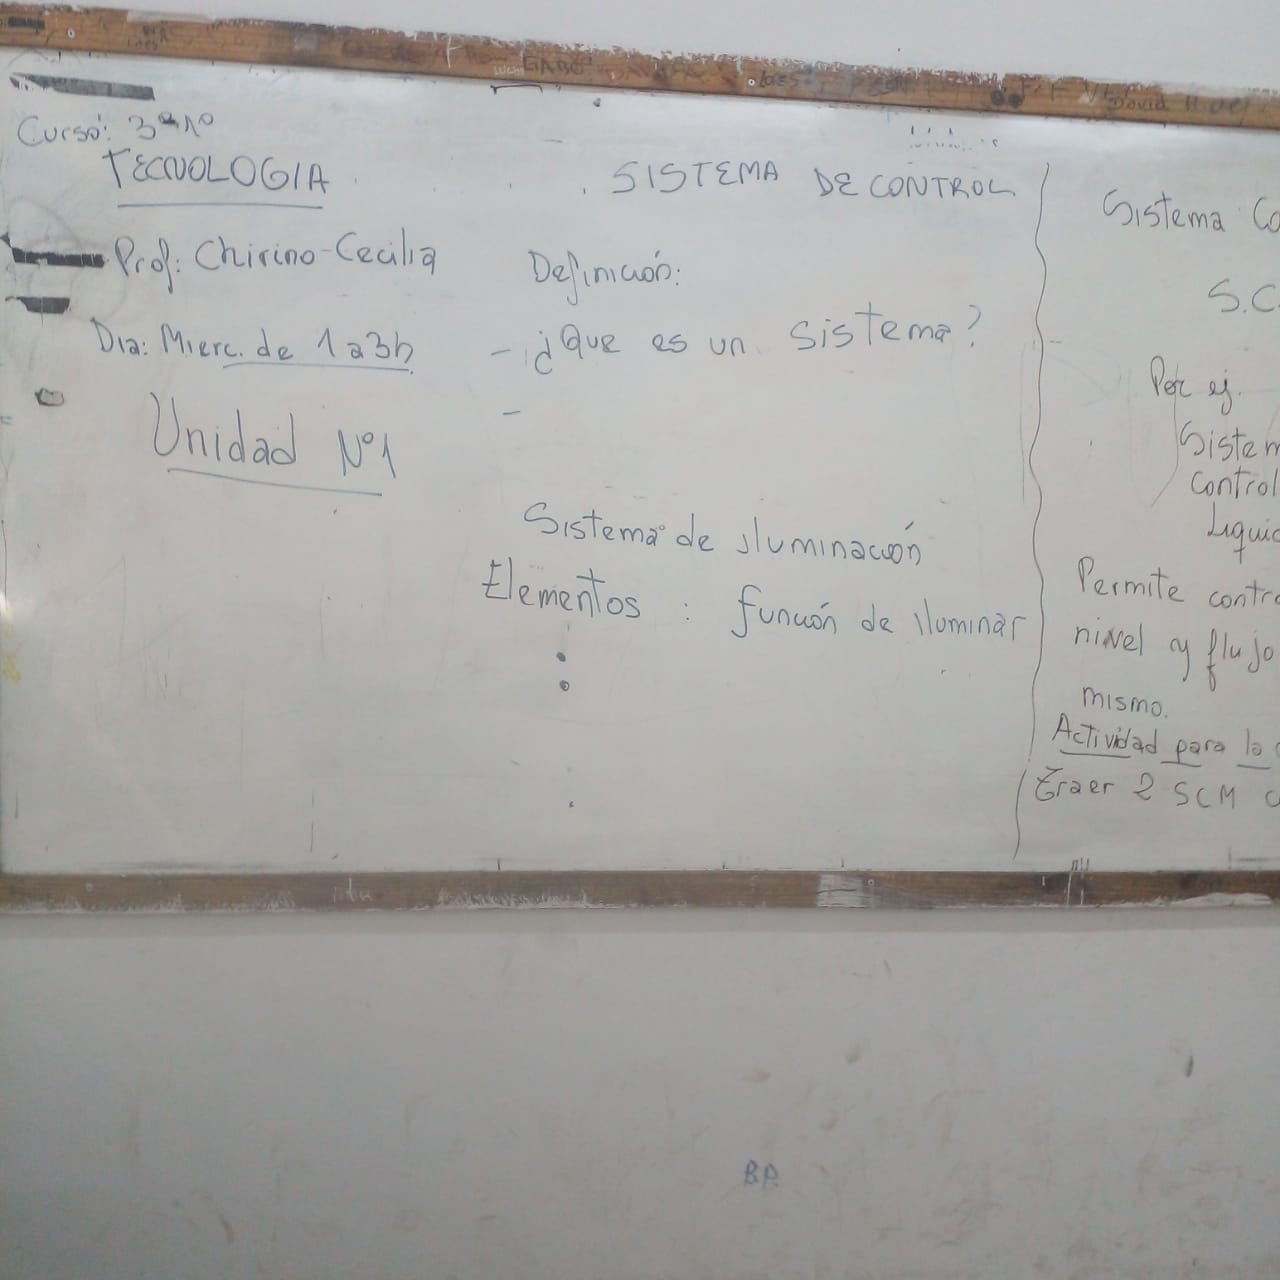 Curso: 3º 1º
TECNOLOGIA
Prof: Chirino-Cecilia
Dia: Mierc. de 1 a 3h
Unidad Nº1
SISTEMA DE CONTROL
Definición:
- ¿Que es un sistema?
-
Sistema de iluminación
Elementos : función de iluminar
Sistema Co
S.C
Por ej.
Sistem
control
Liquid
Permite contro
nivel y flujo
mismo.
Actividad para la
traer 2 SCM
GABO
David
B.P.